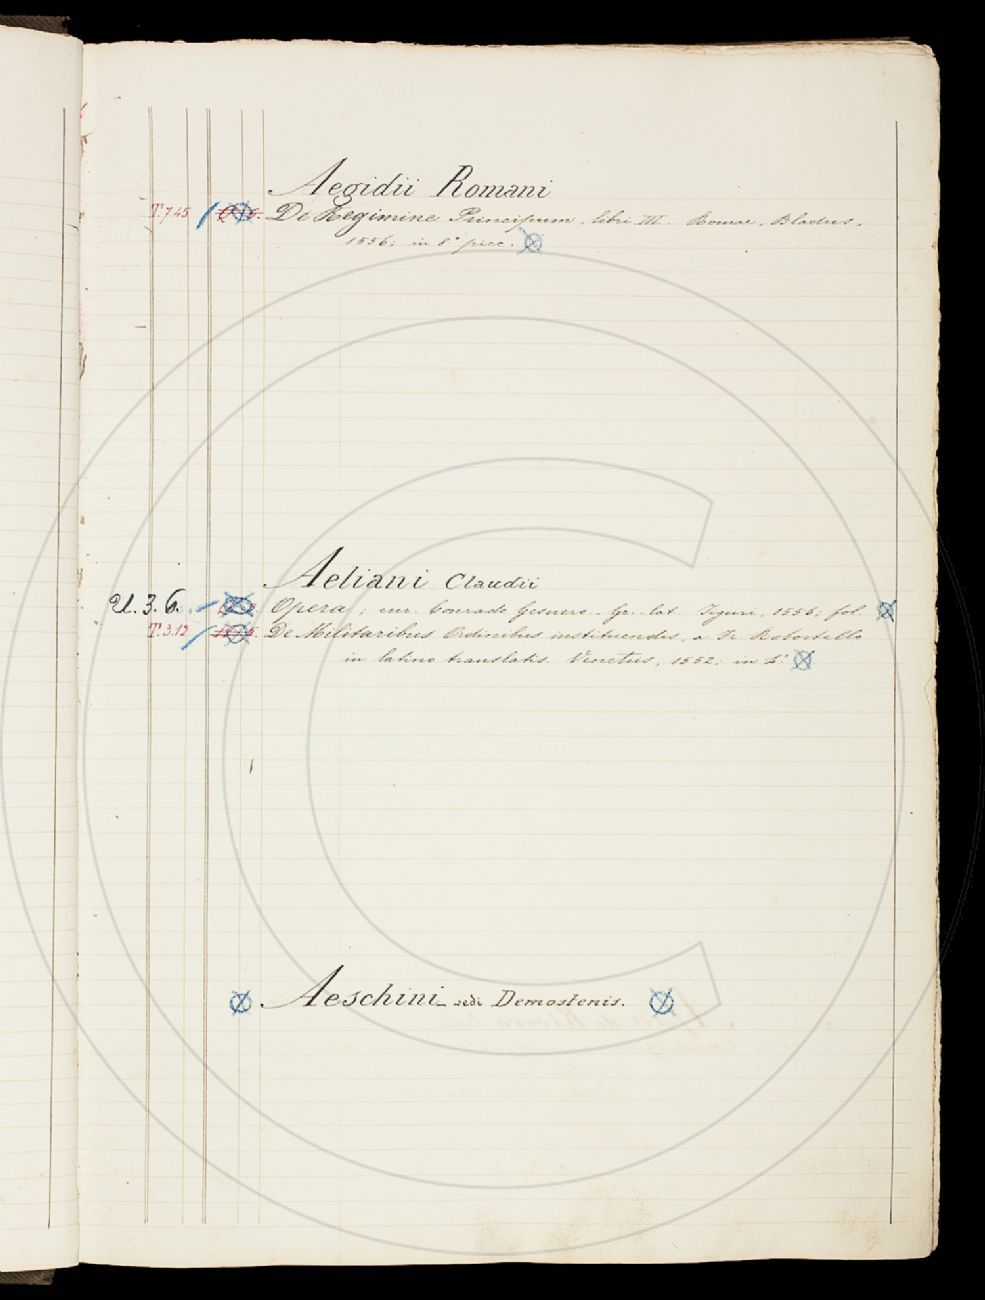 Aegidii Romani
T.7.45 De Regimine Principum, libri III. Romae, Bladus,
1556; in 8.° picc.
Aeliani Claudii
U.3.6. Opera; cur. Conrado Gesnero. Gr. lat. Tiguri, 1556; fol.
T.3.12 De Militaribus Ordinibus instituendis, a Fr. Robortello
in latino translatis. Venetiis, 1552; in 4.°
Aeschini_ vedi Demostenis.